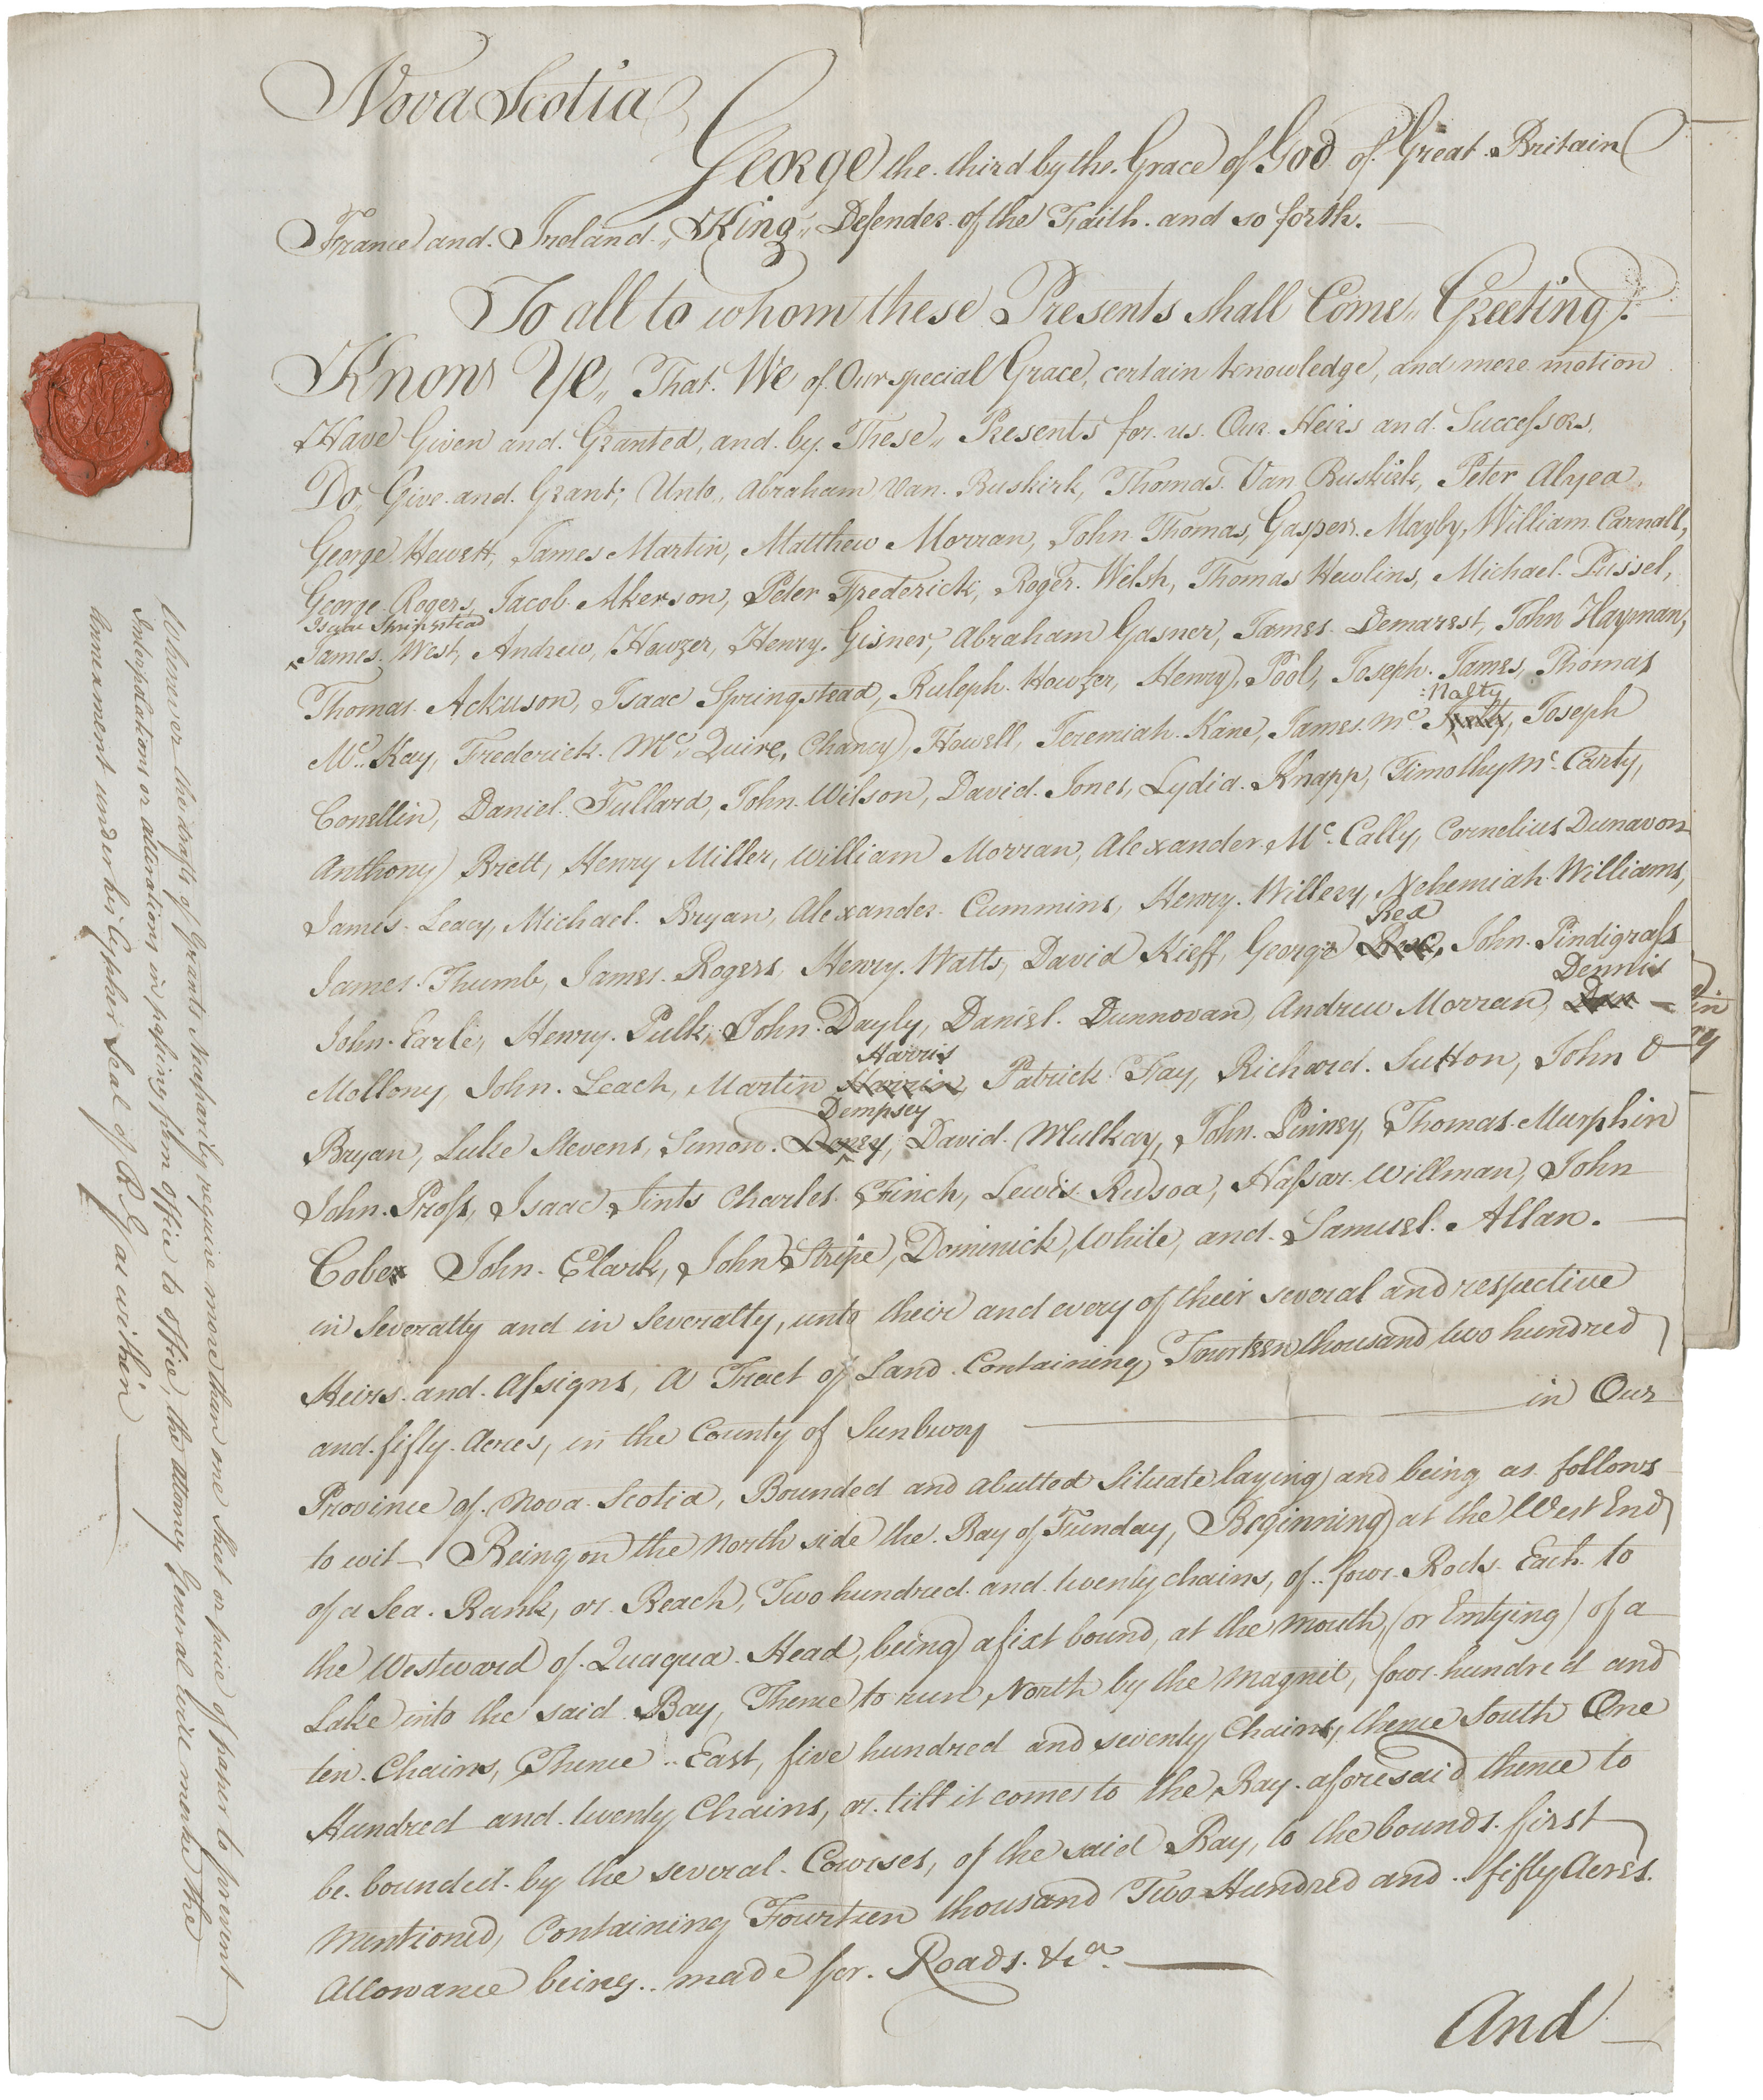 Nova Scotia
George the third by the Grace of God of Great Britain
France and Ireland, King, Defender of the Faith and so forth.
To all to whom these Presents shall Come, Greeting.
Know Ye, That We of Our special Grace, certain knowledge, and mere motion
Have Given and Granted, and by These, Presents for us Our Heirs and Successors,
Do, Give and Grant; Unto, Abraham Van Buskirk, Thomas Van Buskirk, Peter Alyea,
George Hewett, James Martin, Matthew Morran, John Thomas, Gasper Mayby, William Carnall,
George Rogers, Jacob Akerson, Peter Frederick, Roger Welsh, Thomas Hewlins, Michael Pussel,
Isaac
James West, Andrew, Howzer, Henry Gisner, Abraham Gasner, James Demarest, John Hayman,
Thomas Ackuson, Isaac Springstead, Ruleph Howzer, Henry Pool, Joseph James, Thomas
Nalty
Mc. Kay, Frederick Mc. Quire, Chancy Howell, Jeremiah Kane, James Mc , Joseph
Conellin, Daniel Fullard, John Wilson, David Jones, Lydia Knapp, Timothy Mc Carty,
Anthony Brett, Henry Miller, William Morran, Alexander Mc. Cally, Cornelius Dunavon
James Leacy, Michael Bryan, Alexander Cummins, Henry Willery, Nehemiah Williams,
Rea
James Thumb, James Rogers, Henry Watts, David Kieff, George , John Pindigrass
Dennis
John Earle, Henry Pulk, John Dayly, Daniel Dunnovan, Andrew Morran,
Harris
Mollony, John Leach, Martin Patrick Fay, Richard Sutton, John O
Dempsey
Bryan, Luke Stevens, Simon , David Mulkay, John Pinney, Thomas Murphin
John Pross, Isaac Tints Charles Finch, Lewis Rusoa, Hassar Willman, John
Cober John Clark, John Stripe, Dominick White, and Samuel Allan.
in Severalty and in Severalty, unto their and every of their several and respective
Heirs and Assigns, A Tract of Land Containing Fourteen thousand two hundred
and fifty Acres, in the County of Sunbury in Our
Province of Nova Scotia, Bounded and abutted Situate laying and being as follows
to wit Being on the North side the Bay of Funday, Beginning at the West End
of a Sea Bank, or Beach, Two hundred and twenty chains, of four Rods Each to
the Westward of Quaqua Head, being a fixt bound, at the mouth (or Emtying) of a
Lake into the said Bay, Thence to run North by the Magnet, four hundred and
ten Chains, Thence East, five hundred and seventy Chains, thence South One
Hundred and twenty Chains, or till it comes to the Bay aforesaid thence to
be bounded by the several Courses, of the said Bay, to the bounds first
Mentioned, Containing Fourteen thousand Two Hundred and fifty Acres.
Allowance being made for Roads &ca.
And
Whenever the drafts of Grants Mechanicly require more than one Sheet or piece of paper to prevent
Interpolations or alterations in passing from office to office, the attorney General will make the
Annexment under his Cypher Seal of R G as within